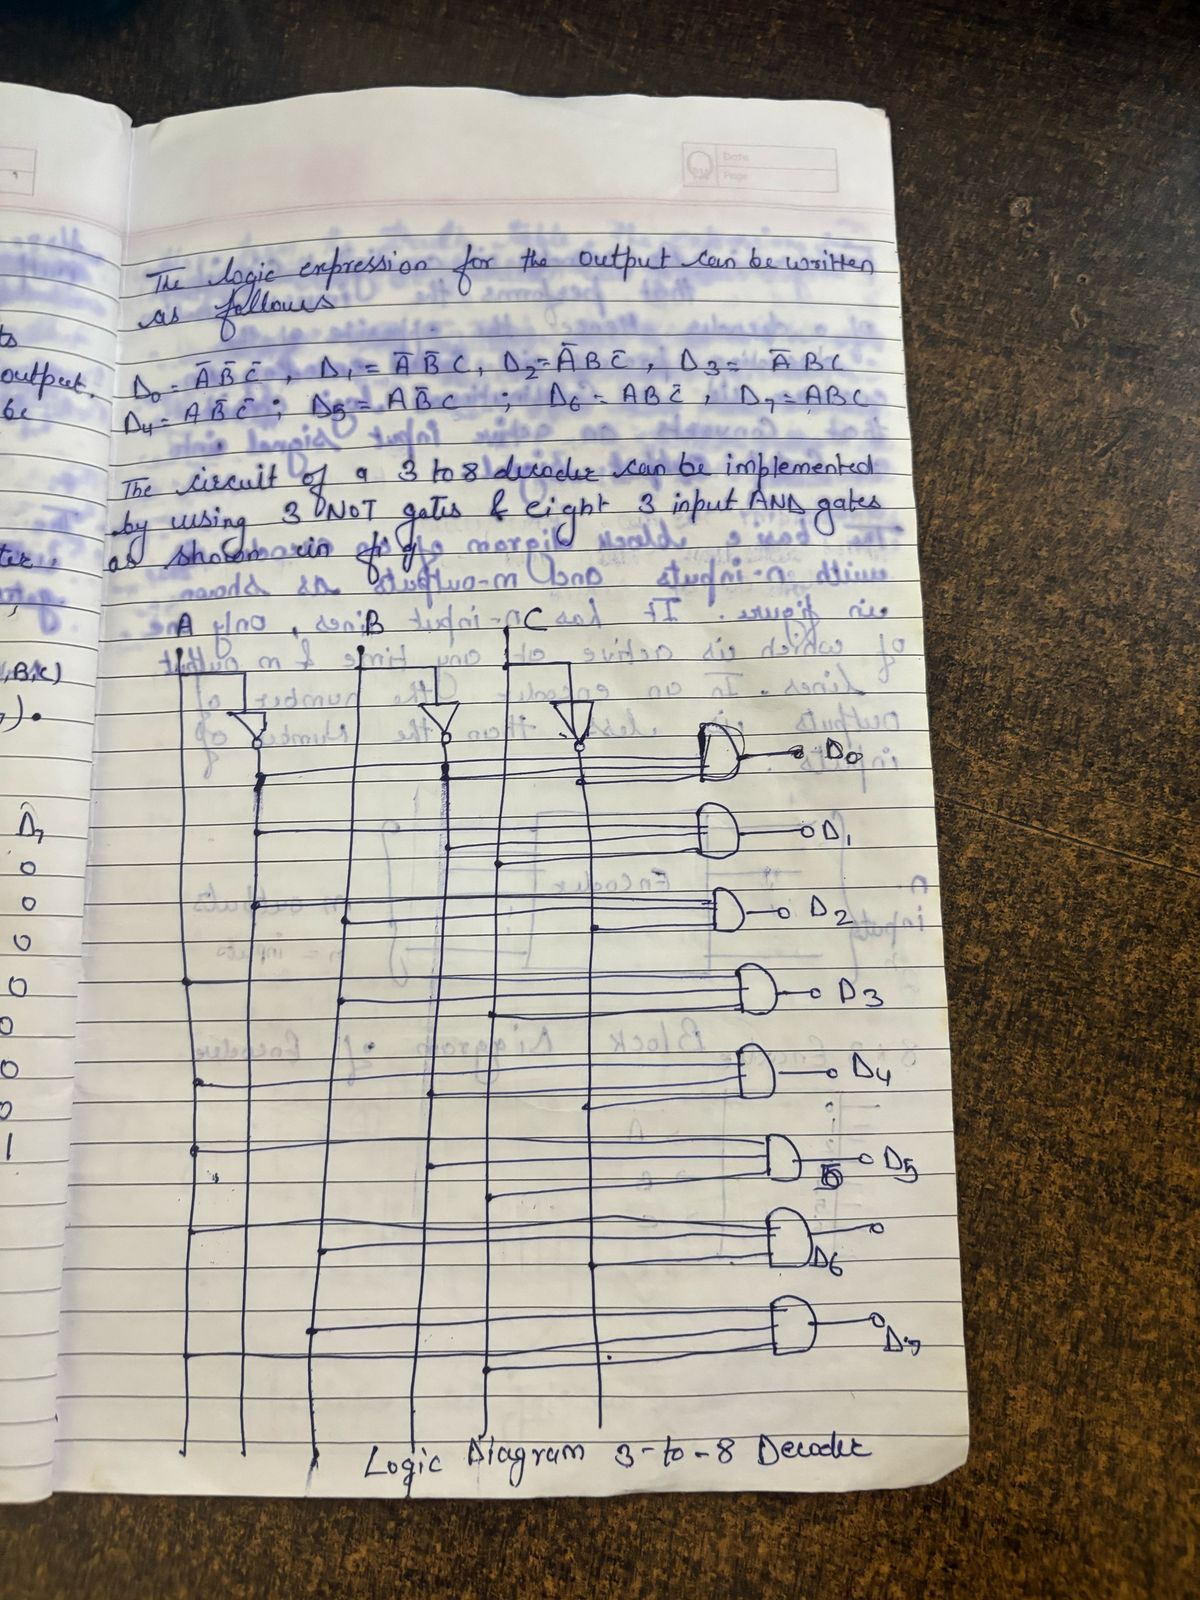 Date
Page
The logic expression for the output can be written
as follows
D₀ = A̅ B̅ C̅ , D₁ = A̅ B̅ C , D₂ = A̅ B C̅ , D₃ = A̅ B C
D₄ = A B̅ C̅ ; D₅ = A B̅ C ; D₆ = A B C̅ , D₇ = A B C
The circuit of a 3 to 8 decoder can be implemented
by using 3 NOT gates & eight 3 input AND gates
as shown in fig
A B C
D₀
D₁
D₂
D₃
D₄
D₅
D₆
D₇
Logic Diagram 3-to-8 Decoder
output.
be
,B,C)
D₇
0
0
0
0
0
0
0
1